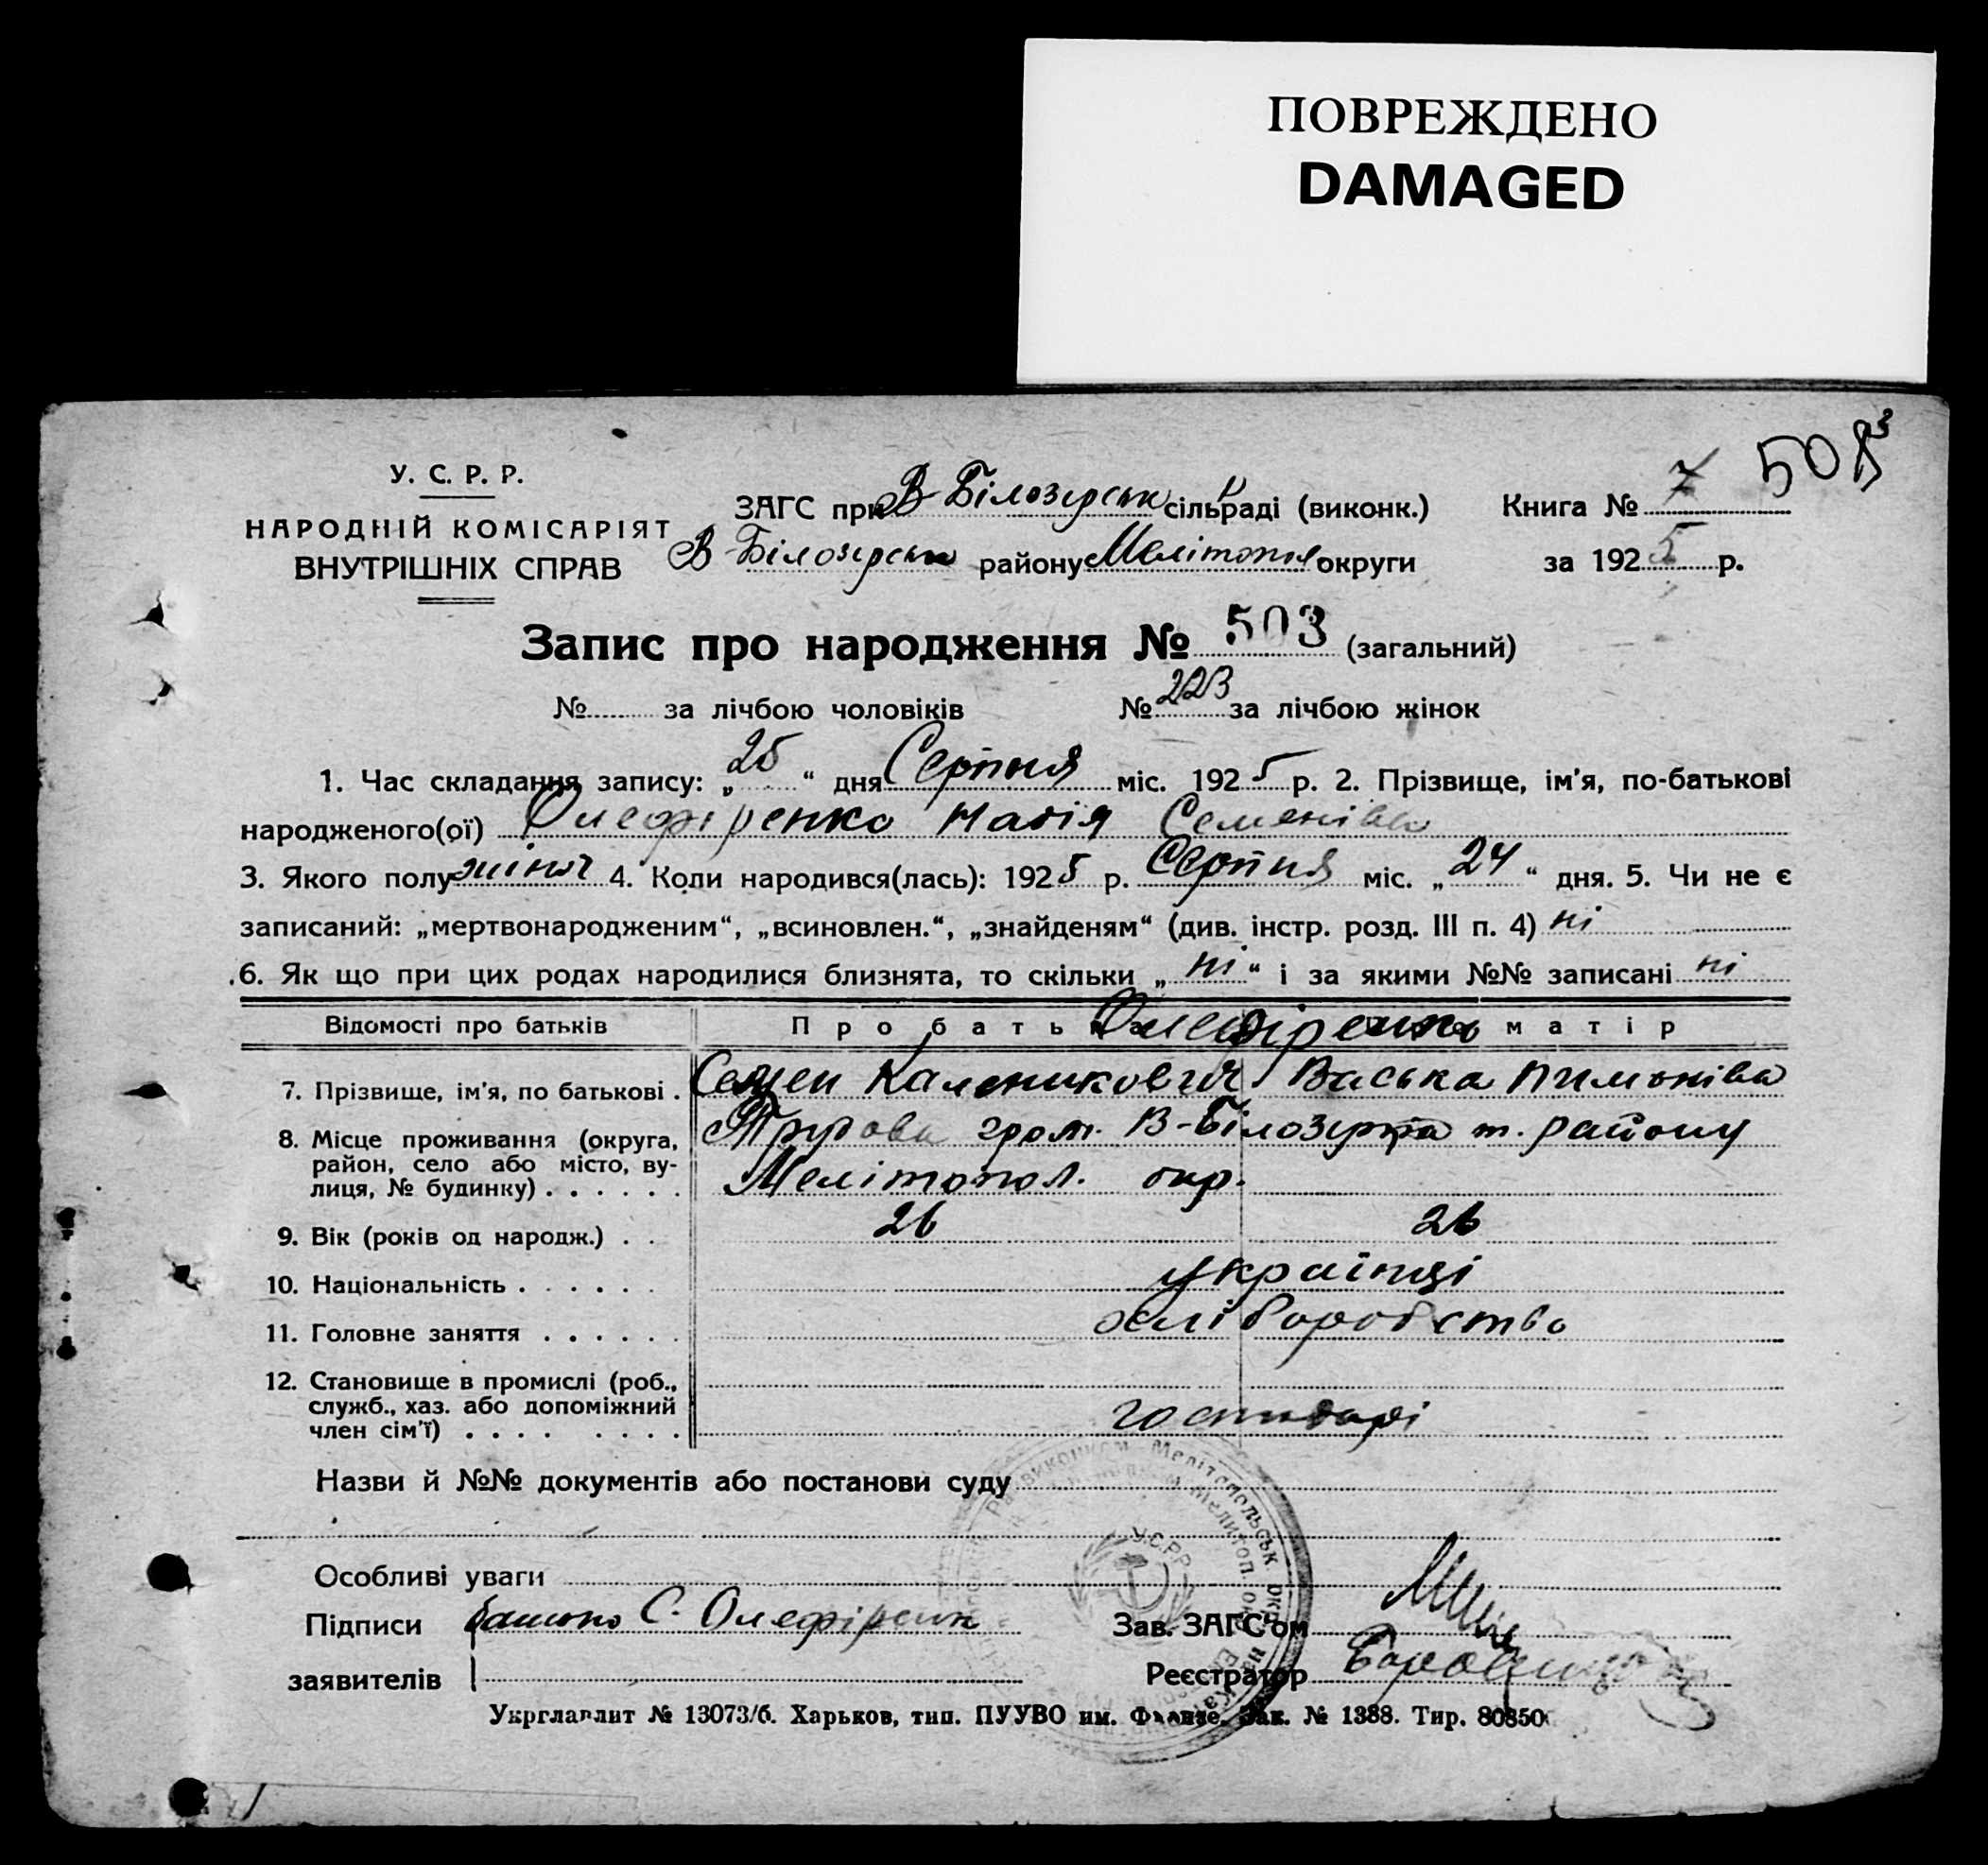 ПОВРЕЖДЕНО
DAMAGED
508
У. С. Р. Р.
НАРОДНІЙ КОМІСАРІЯТ
ВНУТРІШНІХ СПРАВ
ЗАГС при В-Білозерськ сільраді (виконк.) Книга № 7
В-Білозерськ району Мелітопол округи за 1925 р.
Запис про народження № 503 (загальний)
№ за лічбою чоловіків № 223 за лічбою жінок
1. Час складання запису: „25“ дня Серпня міс. 1925 р. 2. Прізвище, ім'я, по-батькові
народженого(ої) Олефіренко Надія Семенівна
3. Якого полу жіноч 4. Коли народився(лась): 1925 р. Серпня міс. „24“ дня. 5. Чи не є
записаний: „мертвонародженим“, „всиновлен.“, „знайденям“ (див. інстр. розд. III п. 4) ні
6. Як що при цих родах народилися близнята, то скільки „ні“ і за якими №№ записані ні
Відомості про батьків Про батька Олефіренко Про матір
7. Прізвище, ім'я, по батькові . Семен Каленикович Васька Пимонівна
8. Місце проживання (округа, район, село або місто, вулиця, № будинку) . . . . . . Трудова гром. В-Білозерка т. району
Мелітопол. окр.
9. Вік (років од народж.) . . 26 26
10. Національність . . . . . . українці
11. Головне заняття . . . . . . хліборобство
12. Становище в промислі (роб., служб., хаз. або допоміжний член сім'ї) . . . . . . . . господарі
Назви й №№ документів або постанови суду
У.С.Р.Р.
Особливі уваги
Підписи батько С. Олефіренко Зав. ЗАГС'ом
заявителів Реєстратор
Укрглавлит № 13073/6. Харьков, тип. ПУУВО им. Фрунзе. Зак. № 1388. Тир. 80850